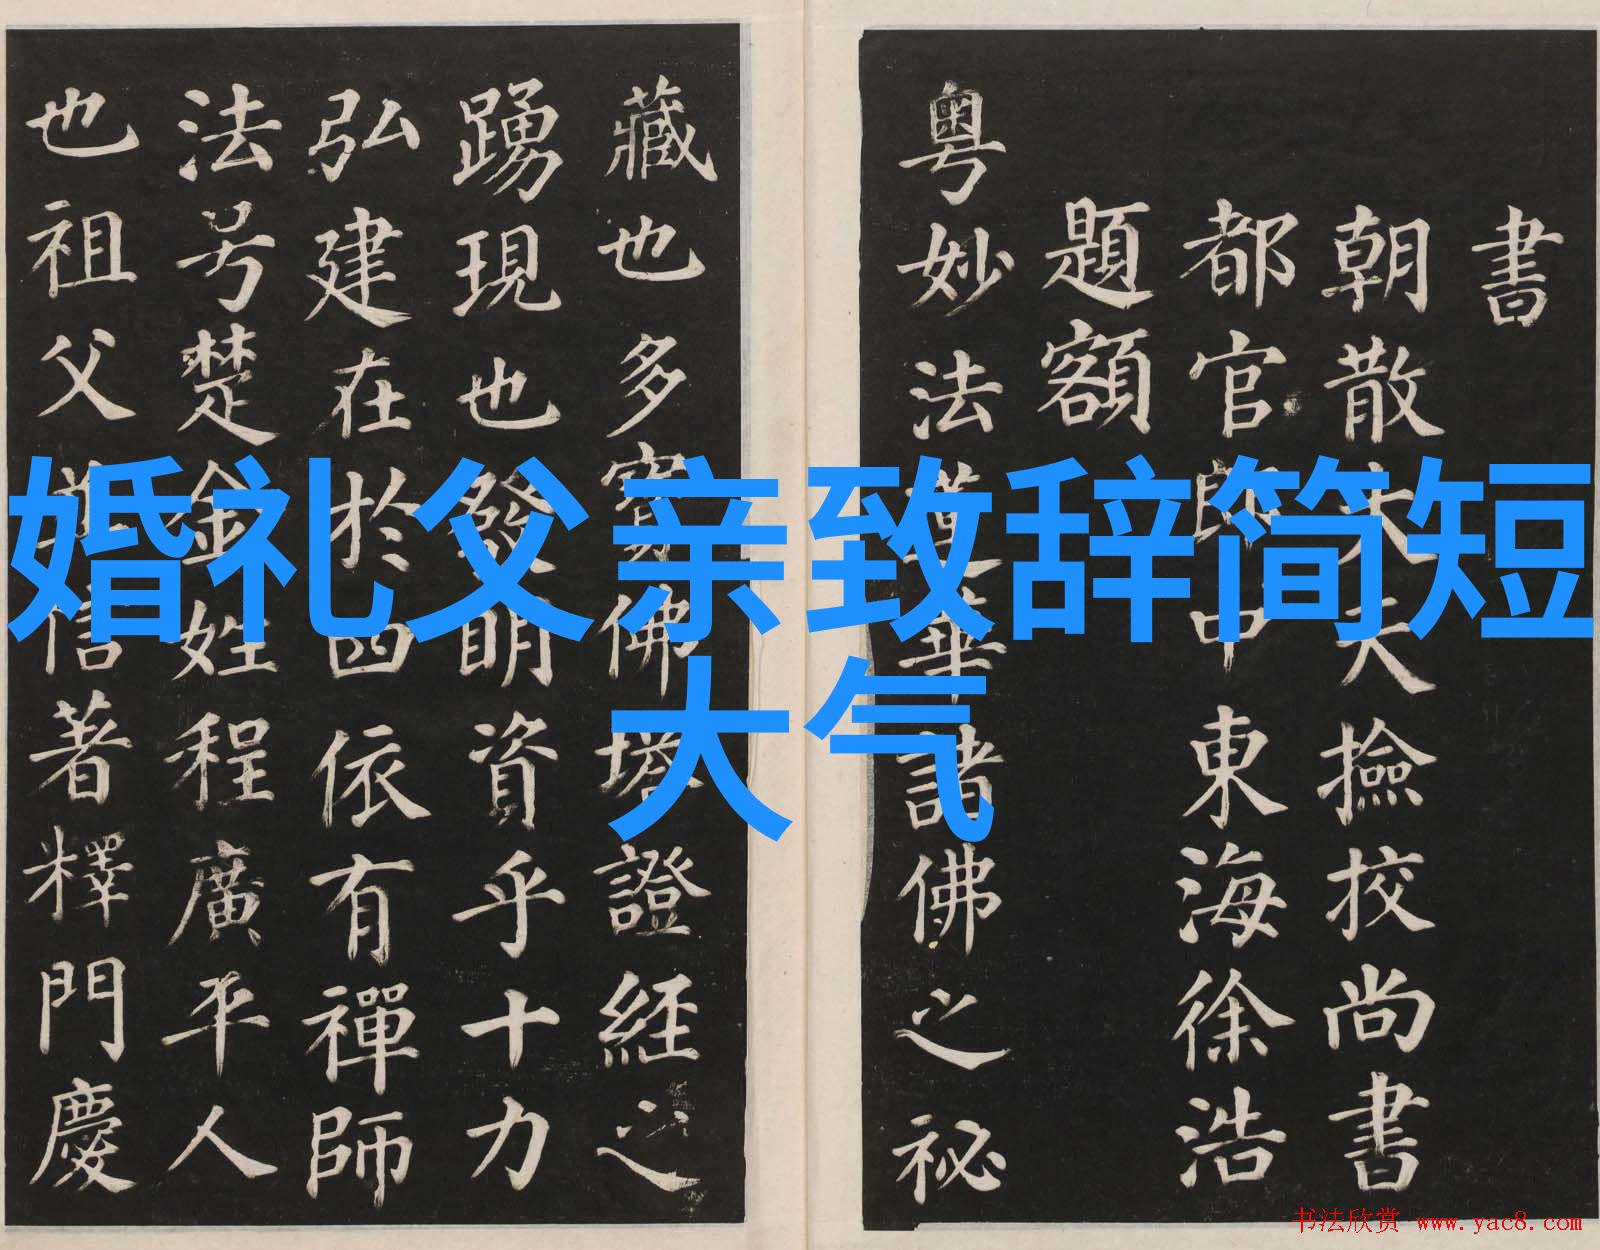 婚礼父亲致辞简短
大气
書
朝散大夫撿校尚書
都官郎中東海徐浩
題額
粤妙法蓮華諸佛之祕
藏也多寶佛塔證經之
踴現也發明資乎十力
弘建在於四依有禪師
法号楚金姓程廣平人
也祖父並信著釋門慶
书法欣赏 www.yac8.com